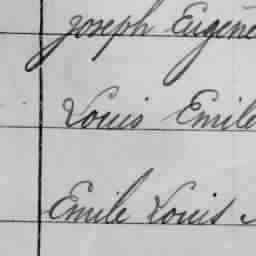 Joseph Eugène
Louis Emile
Emile Louis